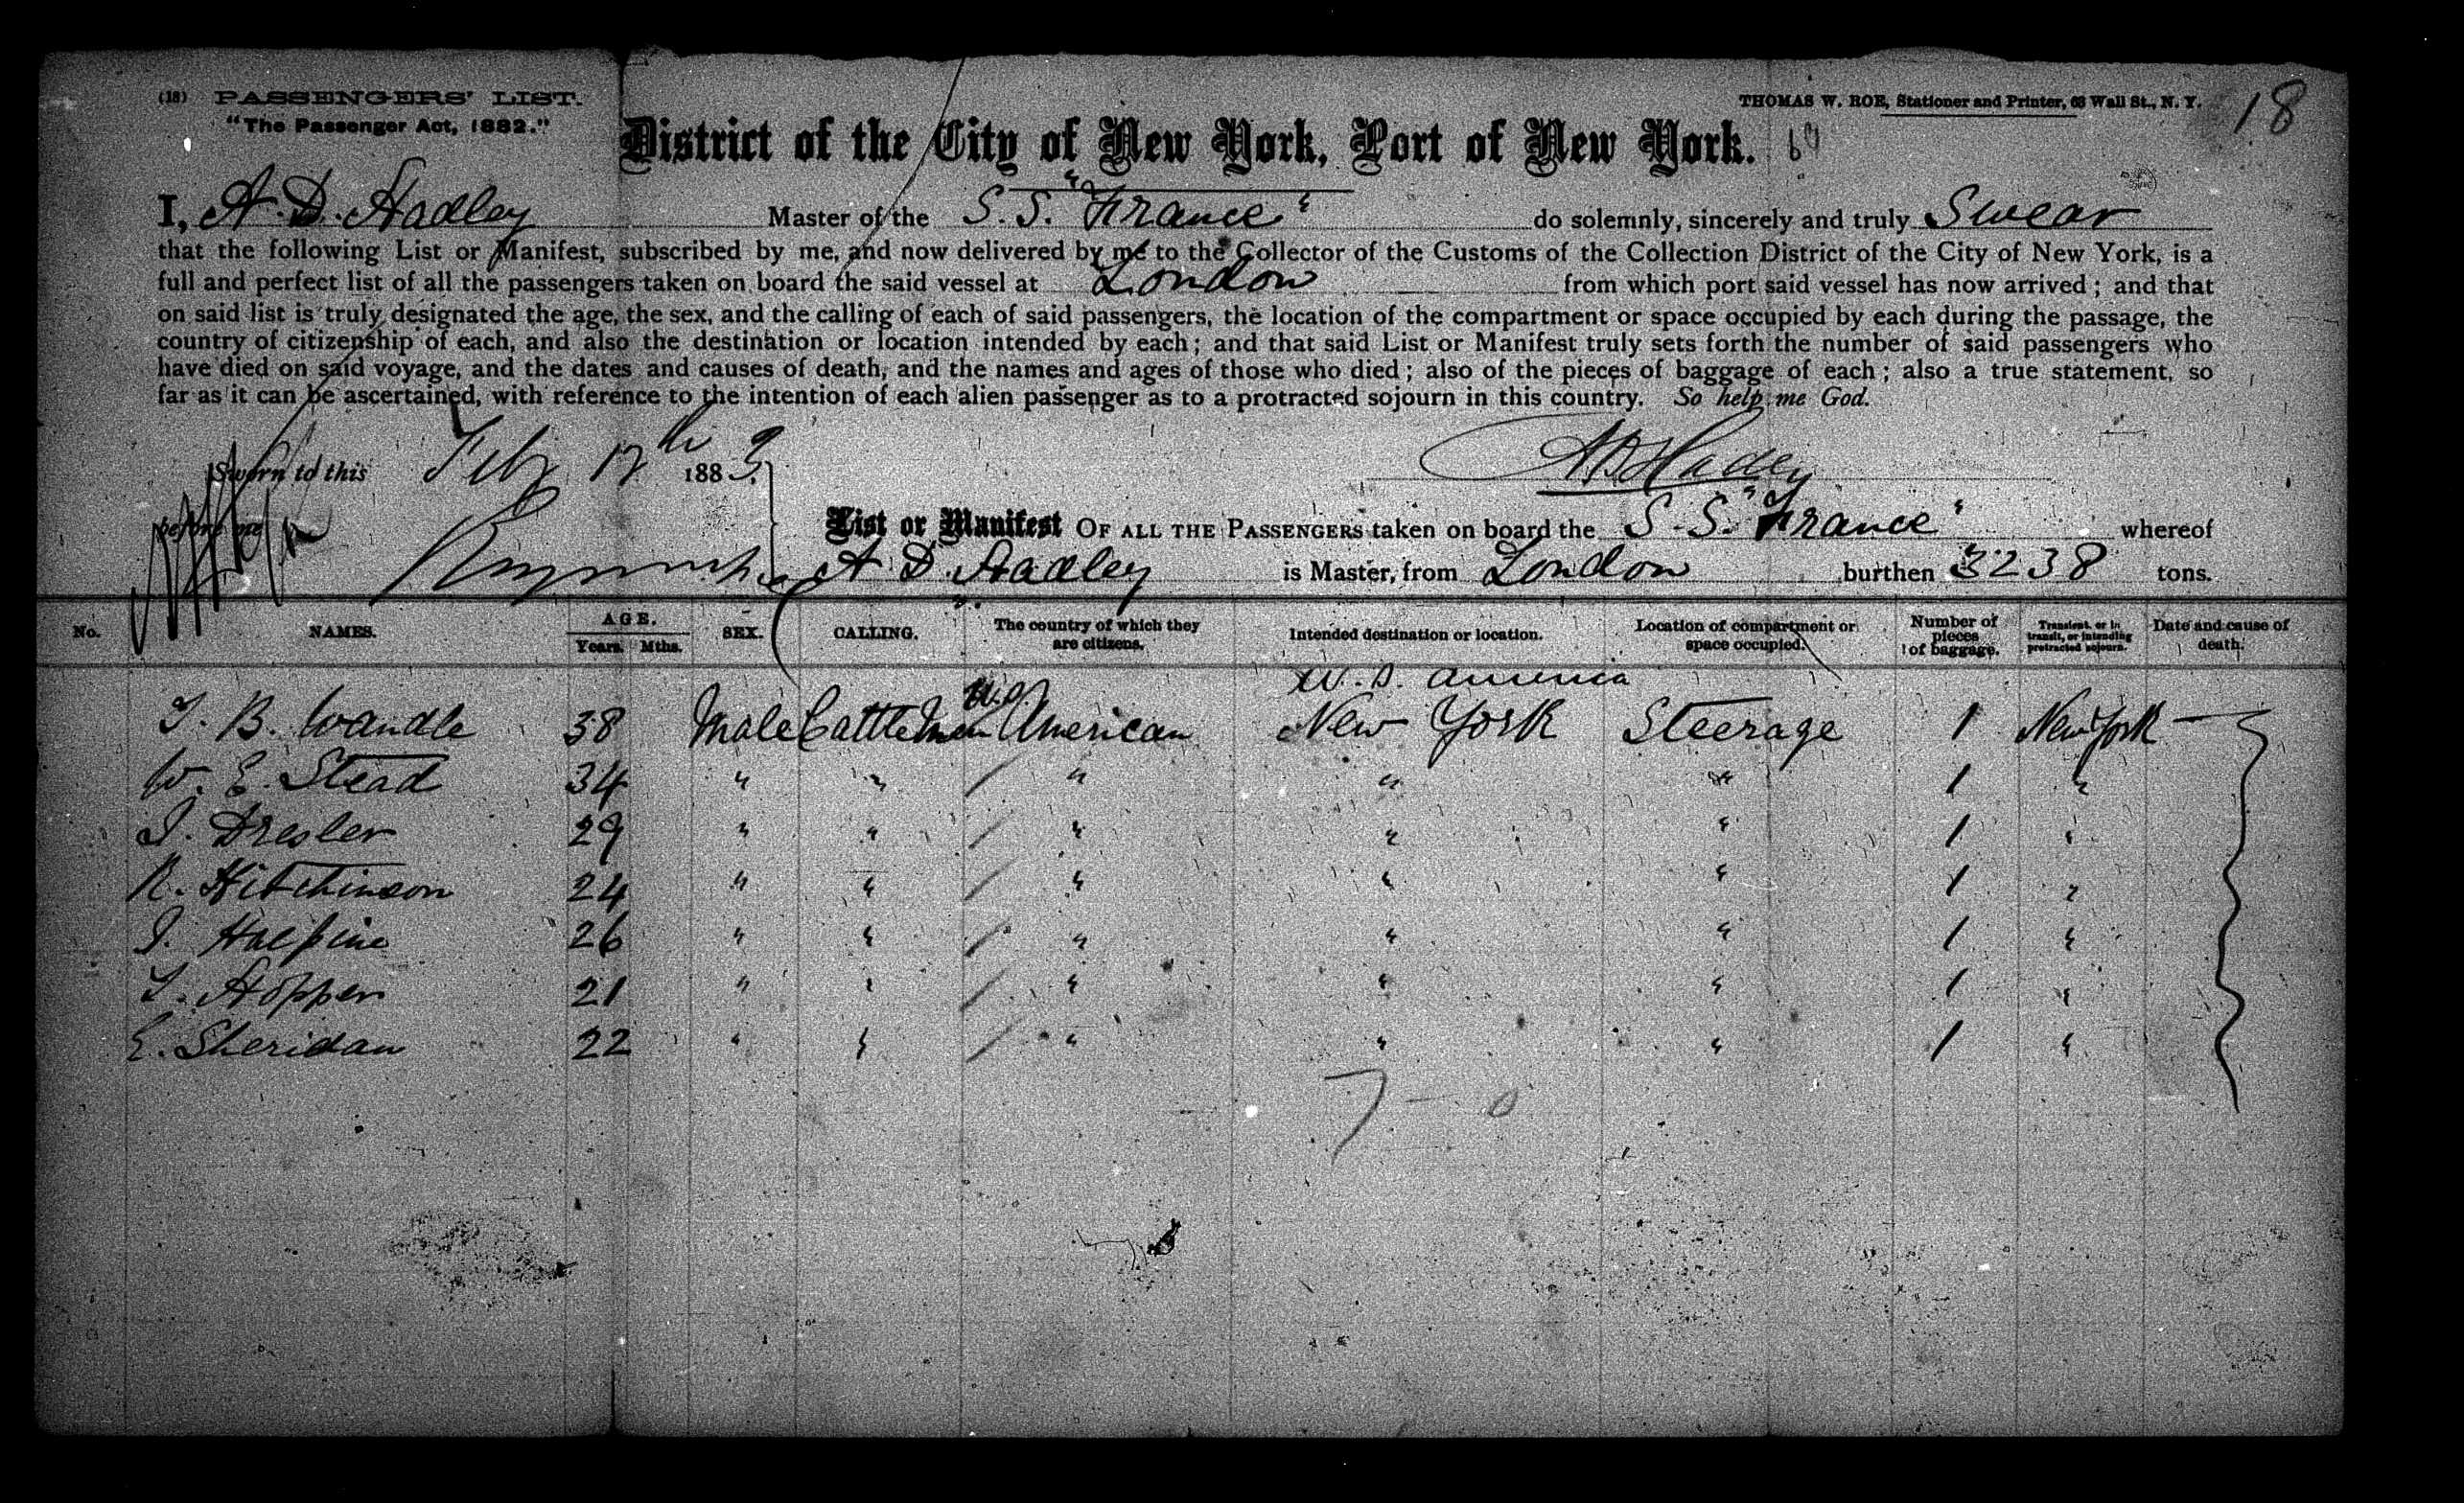 (18) PASSENGERS' LIST.
"The Passenger Act, 1882."
THOMAS W. ROE, Stationer and Printer, 63 Wall St., N. Y.
18
District of the City of New York, Port of New York.
I, A. D. Hadley Master of the S. S. "France" do solemnly, sincerely and truly Swear
that the following List or Manifest, subscribed by me, and now delivered by me to the Collector of the Customs of the Collection District of the City of New York, is a
full and perfect list of all the passengers taken on board the said vessel at London from which port said vessel has now arrived; and that
on said list is truly designated the age, the sex, and the calling of each of said passengers, the location of the compartment or space occupied by each during the passage, the
country of citizenship of each, and also the destination or location intended by each; and that said List or Manifest truly sets forth the number of said passengers who
have died on said voyage, and the dates and causes of death, and the names and ages of those who died; also of the pieces of baggage of each; also a true statement, so
far as it can be ascertained, with reference to the intention of each alien passenger as to a protracted sojourn in this country. So help me God.
Sworn to this Feby 17th 1883.
A D Hadley
before me
List or Manifest OF ALL THE PASSENGERS taken on board the S. S. "France" whereof
A. D. Hadley is Master, from London burthen 3238 tons.
No. NAMES. AGE. Years. Mths. SEX. CALLING. The country of which they are citizens. Intended destination or location. Location of compartment or space occupied. Number of pieces of baggage. Transient, or in transit, or intending protracted sojourn. Date and cause of death.
U. S. America
T. B. Wandle 38 Male Cattlemen U.S. American New York Steerage 1 New York
W. E. Stead 34 " " " " " 1 "
J. Dresler 29 " " " " " 1 "
R. Hitchinson 24 " " " " " 1 "
J. Halpine 26 " " " " " 1 "
T. Hopper 21 " " " " " 1 "
E. Sheridan 22 " " " " " 1 "
7 - 0